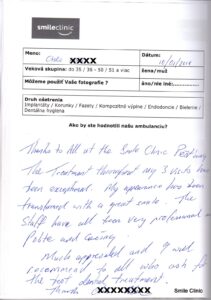 smileclinic
Meno:
XXXX
Dátum:
Veková skupina: do 35 / 35 - 50 / 51 a viac
žena/muž
Môžeme použiť Vaše fotografie ?
áno/nie
Druh ošetrenia
Implantáty / Korunky / Fazety / Kompozitné výplne / Endodoncie / Bielenie /
Dentálna hygiena
Ako by ste hodnotili našu ambulanciu?
Thanks to All at the Smile Clinic
The Treatment throughout my 3 visits have
been exceptional. My appearance have been
transformed with a great smile. The
Staff have all been very professional and
Polite and Caring.
Much appreciated and I will
recommend to all who wish for
the best dental Treatment.
Thanks
XXXXXXXX
Smile Clinic